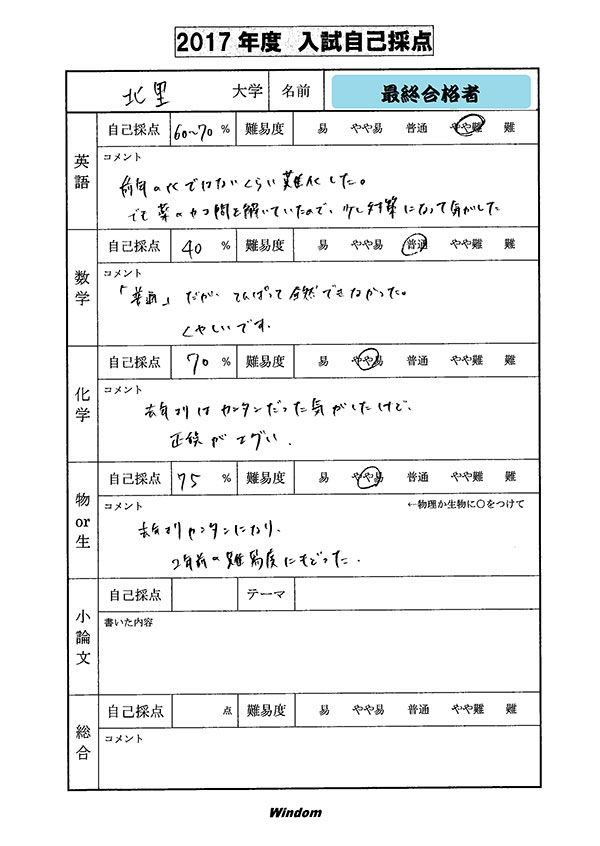 2017年度 入試自己採点
北里 大学 名前 最終合格者
英語 自己採点 60~70 % 難易度 易 やや易 普通 やや難 難
コメント
前年の比ではないくらい難化した。
でも薬のカコ問を解いていたので、少し対策になって気がした
数学 自己採点 40 % 難易度 易 やや易 普通 やや難 難
コメント
「普通」だが、てんぱって全然できなかった。
くやしいです.
化学 自己採点 70 % 難易度 易 やや易 普通 やや難 難
コメント
去年よりはカンタンだった気がしたけど、
正候がエグい.
物or生 自己採点 75 % 難易度 易 やや易 普通 やや難 難
コメント ←物理か生物に○をつけて
去年よりカンタンになり、
2年前の難易度にもどった.
小論文 自己採点 テーマ
書いた内容
総合 自己採点 点 難易度 易 やや易 普通 やや難 難
コメント
Windom